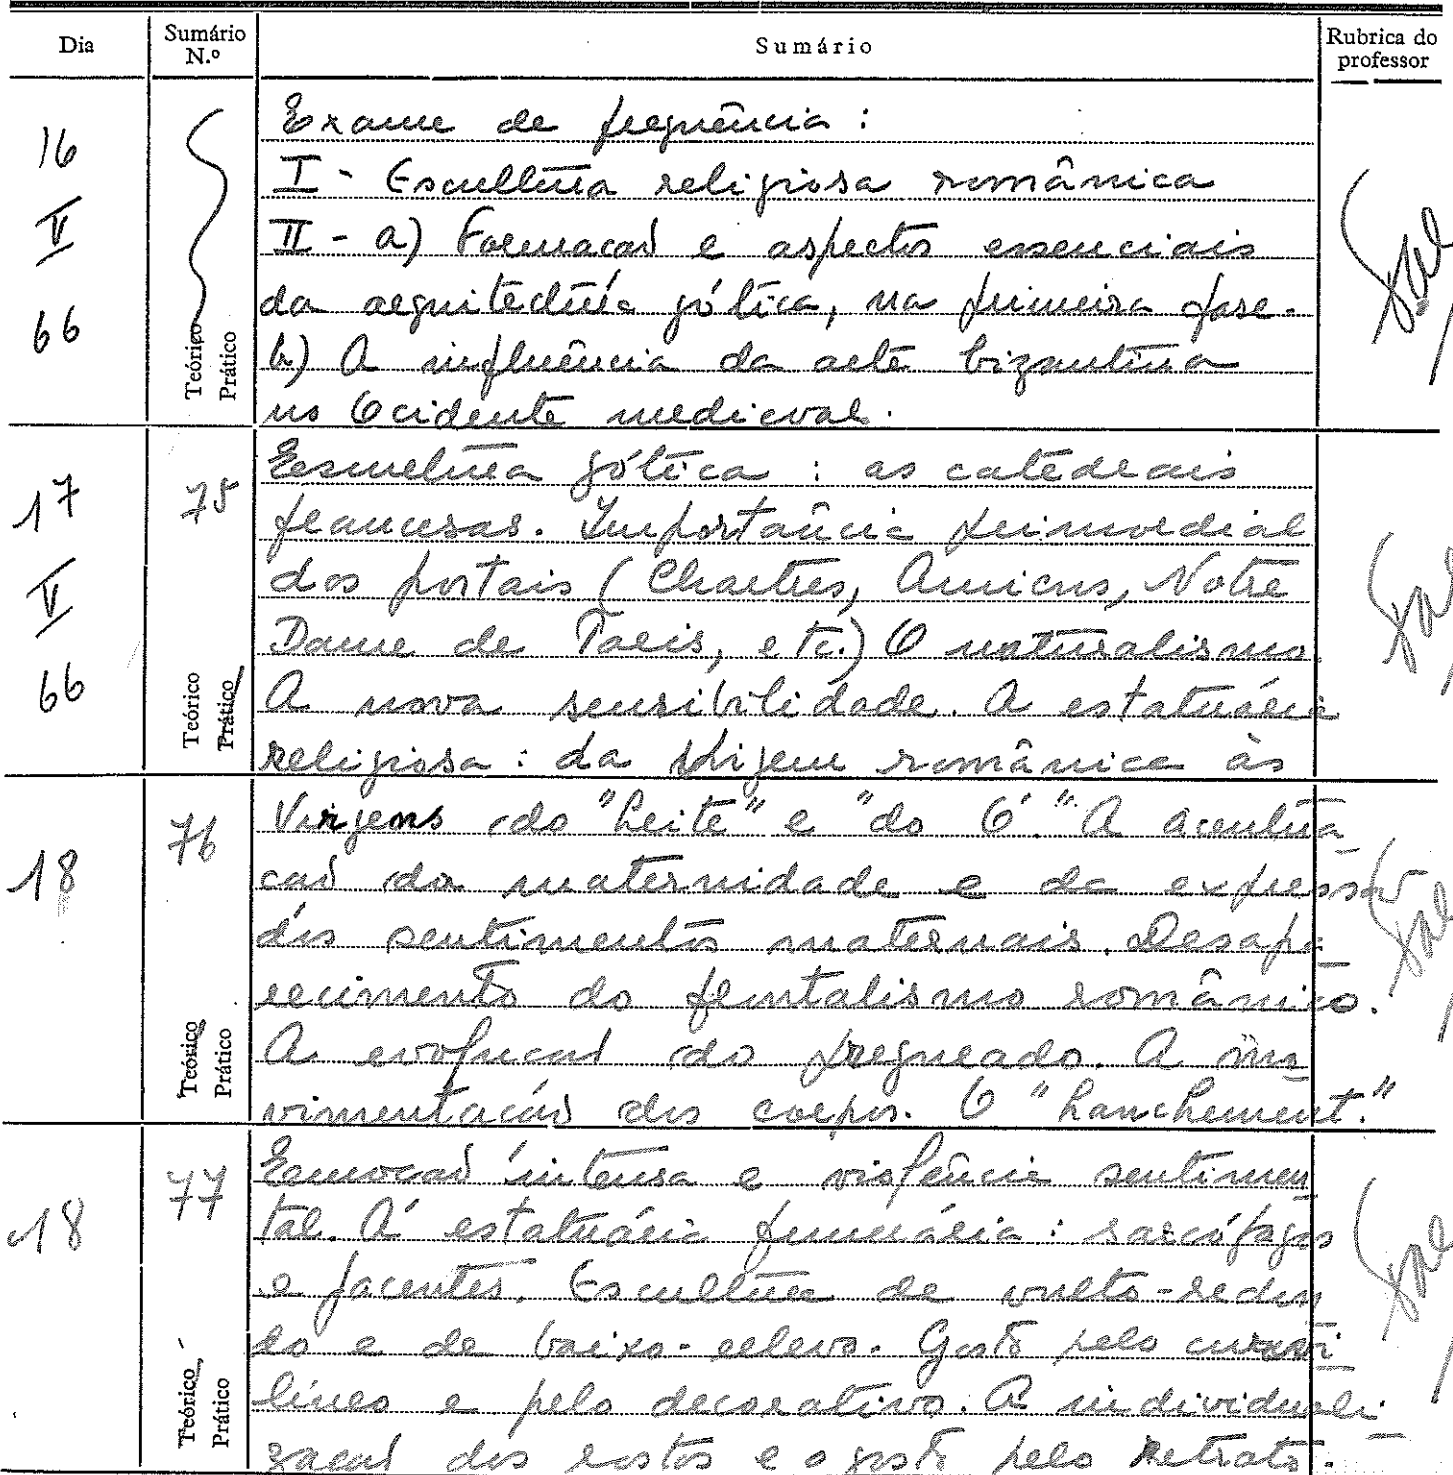 Dia Sumário N.º Sumário Rubrica do professor
16 V 66
Teórico Prático
Exame de frequência :
I - Escultura religiosa românica
II - a) Formação e aspectos essenciais
da arquitectura gótica, na primeira fase.
b) A influência da arte bizantina
no Ocidente medieval.
17 V 66
75
Teórico Prático
Escultura gótica : as catedrais
francesas. Importância primordial
dos portais (Chartres, Amiens, Notre
Dame de Paris, etc.) O naturalismo.
A nova sensibilidade. A estatuária
religiosa : da Virgem românica às
18
76
Teórico Prático
Virgens do "Leite" e "do Ó". A acentua
ção da maternidade e da expressão
dos sentimentos maternais. Desapa
recimento do frontalismo românico.
A evolução do pregueado. A mo
vimentação dos corpos. O "hanchement."
18
77
Teórico Prático
Emoção intensa e violência sentimen
tal. A estatuária funerária : sarcófagos
e jacentes. Escultura de vulto-redon
do e de baixo-relevo. Gosto pelo curvi
líneo e pelo decorativo. A individuali
zação dos rostos e o gosto pelo Retrato.